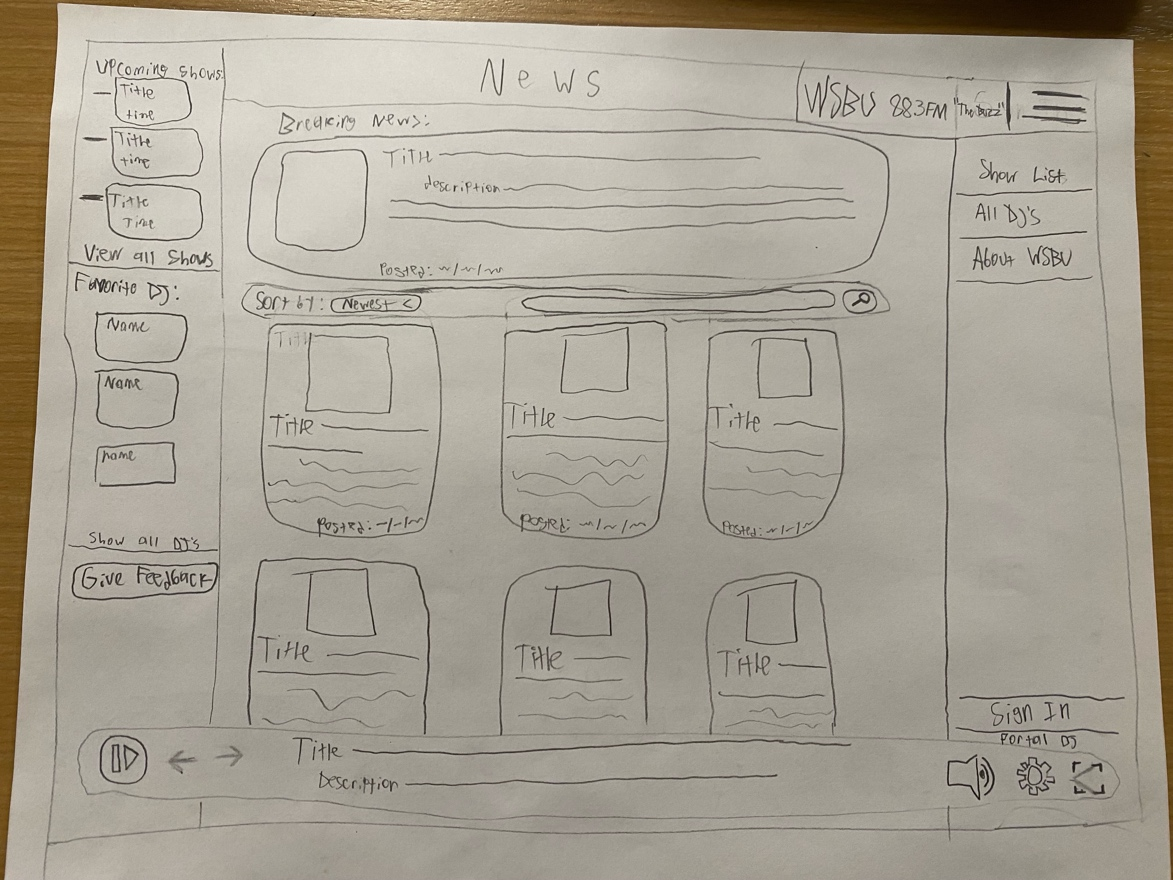 News
WSBU 88.3FM "The Buzz"
Upcoming Shows:
Title
time
Title
time
Title
Time
View all Shows
Favorite DJ:
Name
Name
name
Show all DJ's
Give Feedback
Breaking News:
Title
description
Posted: ~/~/~
Sort by: Newest <
Title
Title
Posted: ~/~/~
Title
Posted: ~/~/~
Title
Posted: ~/~/~
Title
Title
Title
Show List
All DJ's
About WSBU
Sign In
Portal DJ
Title
Description